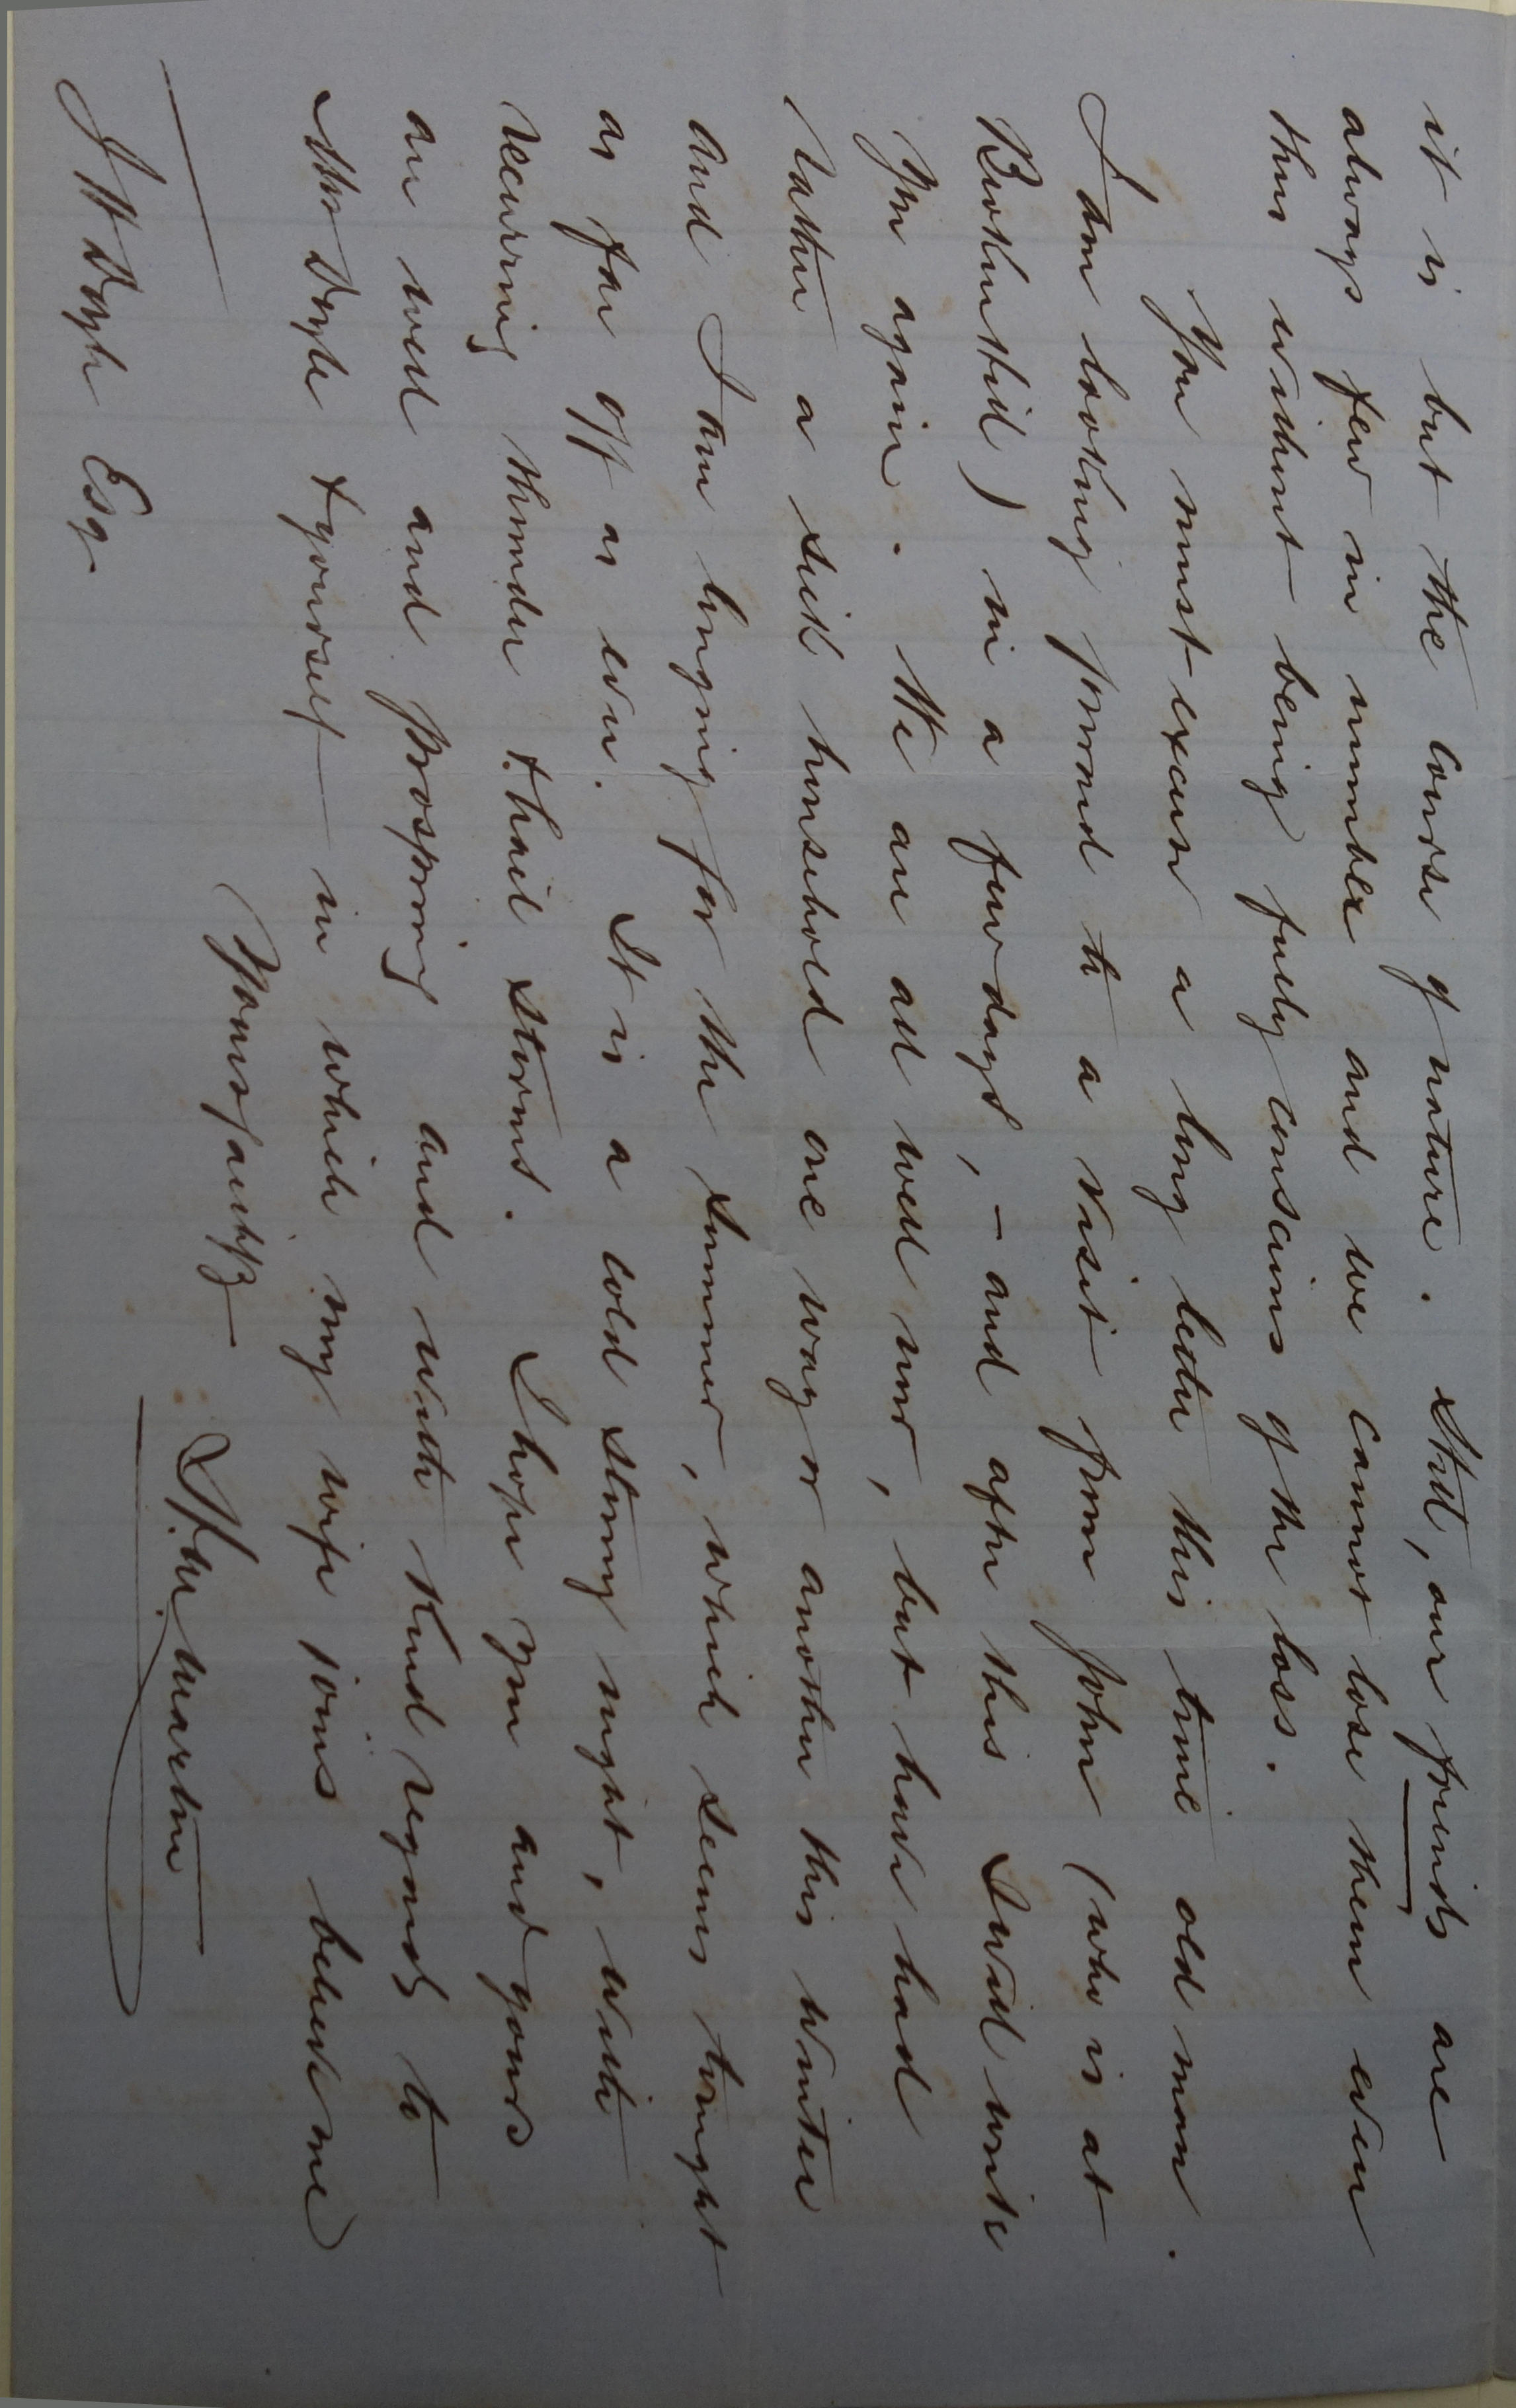 it is but the course of nature. Still, our friends are
always few in number and we cannot lose them even
thus without being fully conscious of the loss.
You must excuse a long letter this time old man.
I am looking forward to a visit from John (who is at
in a few days, - and after this I will write
you again. We are all well now, but have had
rather a sick household one way or another this winter
and I am longing for the summer, which seems tonight
as far off as ever. It is a cold stormy night, with
recurring thunder & hail storms. I hope you and yours
are well and prospering and with kind regards to
Mrs Doyle & yourself - in which my wife joins believe me
Yours faithfy
Martin
J H Doyle Esq.